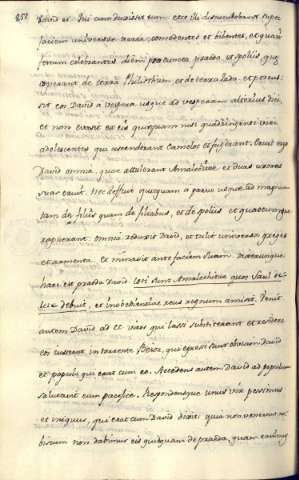 David es. Qui cum duxisset eum, ecce illi discumbebant super
faciem universæ terræ, comedentes et bibentes, et quasi
festum celebrantes diem pro cuncta præda et spoliis, quæ
ceperant de terra Philisthiim, et de terra Juda. et percus-
sit eos David a vespera usque ad vesperam alterius diei,
et non evasit ex eis quisquam nisi quadringenti viri
adolescentes qui ascenderant camelos et fugerant. Eruit ergo
David omnia quæ tulerant Amalecitæ, et duas uxores
suas eruit. Nec defuit quidquam a parvo usque ad magnum
tam de filiis quam de filiabus, et de spoliis et quæcumque
rapuerant omnia reduxit David, et tulit universos greges
et armenta et minavit ante faciem suam. dixeruntque
hæc est præda David. Isti sunt Amalechitæ quos Saul de-
lere debuit, et inobedientiæ reus regnum amisit. Venit
autem David ad cc viros qui lassi substiterant et residere
eos iusserat in torrente Besor, qui egressi sunt obviam David
et populo qui erat cum eo. Accedens autem David ad populum
salutavit eum pacifice. Respondensque unus vir pessimus
et iniquus, qui erat cum David dixit: quia non venerunt no-
biscum non dabimus eis quidquam de præda, quam eruimus